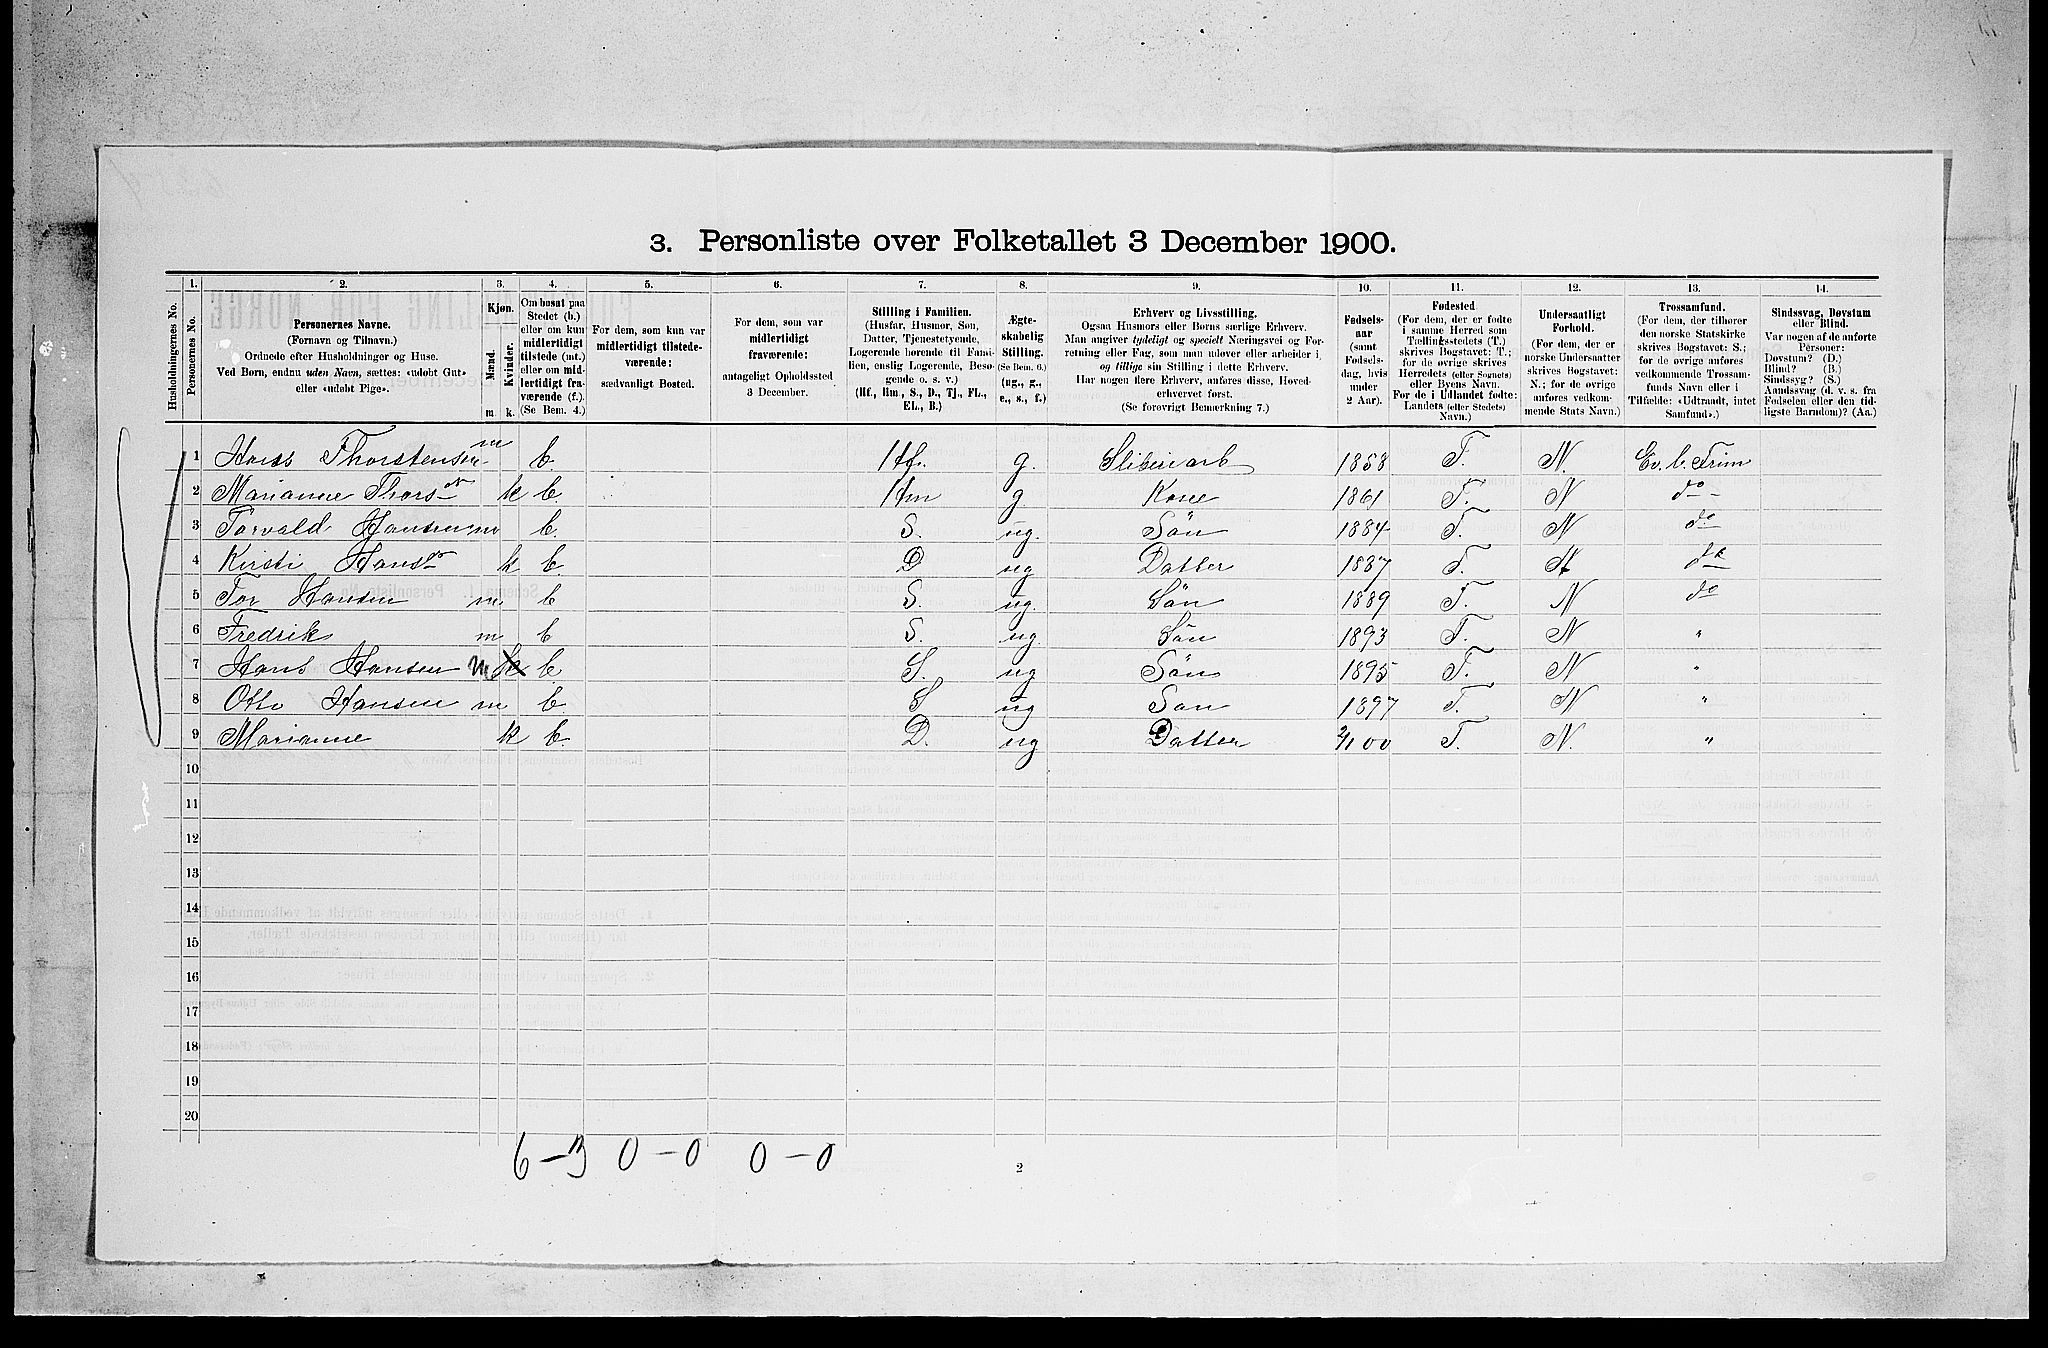 3. Personliste over Folketallet 3 December 1900.
Husholdningernes No.
1. Personernes No.
2. Personernes Navne.
(Fornavn og Tilnavn.)
Ordnede efter Husholdninger og Huse.
Ved Børn, endnu uden Navn, sættes: «udøbt Gut»
eller «udøbt Pige».
3. Kjøn.
Mænd. Kvinder.
m. k.
4. Om bosat paa
Stedet (b.)
eller om kun
midlertidigt
tilstede (mt.)
eller om mid-
lertidigt fra-
værende (f.).
(Se Bem. 4.)
5. For dem, som kun var
midlertidigt tilstede-
værende:
sædvanligt Bosted.
6. For dem, som var
midlertidigt
fraværende:
antageligt Opholdssted
3 December.
7. Stilling i Familien.
(Husfar, Husmor, Søn,
Datter, Tjenestetyende,
Logerende hørende til Fami-
lien, enslig Logerende, Besø-
gende o. s. v.)
(Hf., Hm., S., D., Tj., FL.,
EL., B.)
8. Ægte-
skabelig
Stilling.
(Se Bem. 6.)
(ug., g.,
e., s., f.)
9. Erhverv og Livsstilling.
Ogsaa Husmors eller Børns særlige Erhverv.
Man angiver tydeligt og specielt Næringsvei og For-
retning eller Fag, som man udøver eller arbeider i,
og tillige sin Stilling i dette Erhverv.
Har nogen flere Erhverv, anføres disse, Hoved-
erhvervet først.
(Se forøvrigt Bemærkning 7.)
10. Fødsels-
aar
(samt
Fødsels-
dag, hvis
under
2 Aar).
11. Fødested.
(For dem, der er fødte
i samme Herred som
Tællingsstedets (T.)
skrives Bogstavet: T.;
for de øvrige skrives
Herredets (eller Sognets)
eller Byens Navn.
For de i Udlandet fødte:
Landets (eller Stedets)
Navn.)
12. Undersaatligt
Forhold.
(For dem, der er
norske Undersaatter
skrives Bogstavet:
N.; for de øvrige
anføres vedkom-
mende Stats Navn.)
13. Trossamfund.
(For dem, der tilhører
den norske Statskirke
skrives Bogstavet: S.;
for de øvrige anføres
vedkommende Trossam-
funds Navn eller i
Tilfælde: «Udtraadt, intet
Samfund».)
14. Sindssvag, Døvstum
eller Blind.
Var nogen af de anførte
Personer:
Døvstum? (D.)
Blind? (B.)
Sindssyg? (S.)
Aandssvag (d. v. s. fra
Fødselen eller den tid-
ligste Barndom)? (Aa.)
1 Hans Thorstensen m b. Hf. g. Sliberiarb 1858 T. N. Ev. l. Frim
2 Marianne Thorsdt k b. Hm g. Kone 1861 T. N do
3 Torvald Hansen m b. S. ug. Sön 1884 T. N do
4 Kirsti Hansdt k b. D ug Datter 1887 T. N do
5 Tor Hansen m. b S. ug. Sön 1889 T. N do
6 Fredrik m b S. ug. Sön 1893 T. N "
7 Hans Hansen m k b. S. ug Sön 1895 T. N "
8 Otto Hansen m b. S ug Søn 1897 T. N "
9 Marianne k b. D. ug Datter 2/1 00 T. N. "
10
11
12
13
14
15
16
17
18
19
20
6-3 0-0 0-0
2